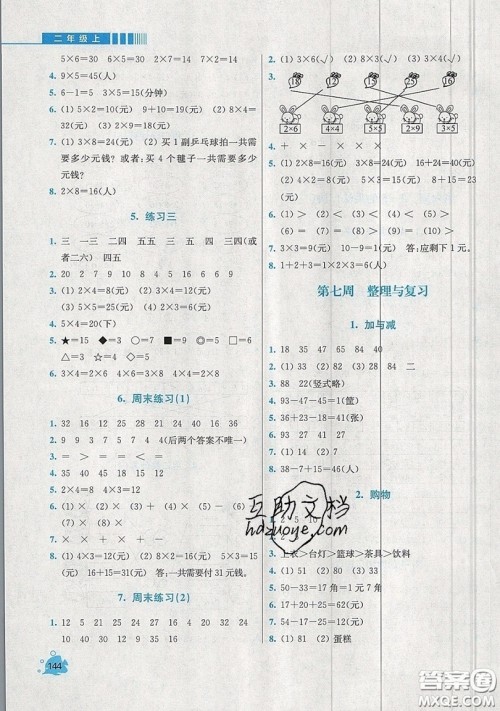 二年级上
5×6=30 6×5=30 2×7=14 7×2=14
4. 9×5=45(人)
5. 6-1=5 3×5=15(分钟)
6. (1) 5×2=10(元) 9+10=19(元) (2) 8×4=
32(元) (3) 2×8=16(元)
7. (1) 3×8=24(元) 买1副乒乓球拍一共需
要多少元钱? 或者:买4个毽子一共需要多少
元钱?
8. 2×8=16(人)
5. 练习三
1. 三 一三 二四 五五 五三 五三 四三(或
者二六) 四五
2. 20 2 9 7 7 9 7 6 5 8 4
3. (1) 2×4=8(元) (2) 3×4=12(元)
(3) 5×5=25(元)
4. 5×4=20(下)
5. ★=15 ◆=3 ○=12 ■=9 ◎=5
△=3 ☆=3 □=4 ●=6
6. 2×4=8 3×4=12 4×4=16 6×4=24
6. 周末练习(1)
1. 32 18 15 16 28 12 24 21 40 25 16
2. 9 9 3 7 3 5 4 4(后两个答案不唯一)
3. 35 45 45 48 15 12 18
4. 12 15 18 24 30 36
5. 2×4=8 4×2=8
6. (1) × (2) × (3) + (4) - (5) -
(6) ×
7. < < = > > =
8. (1) 4×3=12(元) (2) 5×3=15(元) 6+
15=21(元) (3) 3×5=15(元) 4×4=
16(元) 15+16=31(元) 答:一共需要付31元钱。
7. 周末练习(2)
1. 12 14 12 24 15 16 21 32 18 25
10 30 9 35 12 6
144
2. (1) 3×6(√) (2) 8×3(√) (3) 3×4(√)
3.
18 12 15 25 16
2×6 4×4 5×5 2×9 3×5
4. + + × - × -
5. (1) 2×8=16(元) 3×8=24(元) 16+24=40(元)
(2) 4×2=8(元) 5×3=15(元) 8+15=23
(元)
6. (1) > (2) = (3) < (4) > (5) =
(6) <
7. 3×3=9(元) 10-9=1(元) 答:应剩下1元。
8. 1+2+3=1×6=2×3=6(人)
第七周 整理与复习
1. 加与减
1. 18 35 47 65 84 40
2. (1) 82 (2) 39 (3) 28 84 二
3. 88 22 (竖式略)
4. 93-47-45=1(筐)
5. 36+23-18=41(张)
6. 52+34-85=1(人)
7. (1) 14 (2) 9
8. 38-7+15=46(人)
2. 购物
3. 上衣>台灯>篮球>茶具>饮料
4. 50-33=17(角)=1元7角
5. 24+30=54(元)
6. 81-53=28(元)
7. 55-15-22=18(元)
8. (1) 81 (2) 蛋糕
互助文档
hdzuoye.com
答案圈
MXQE.COM